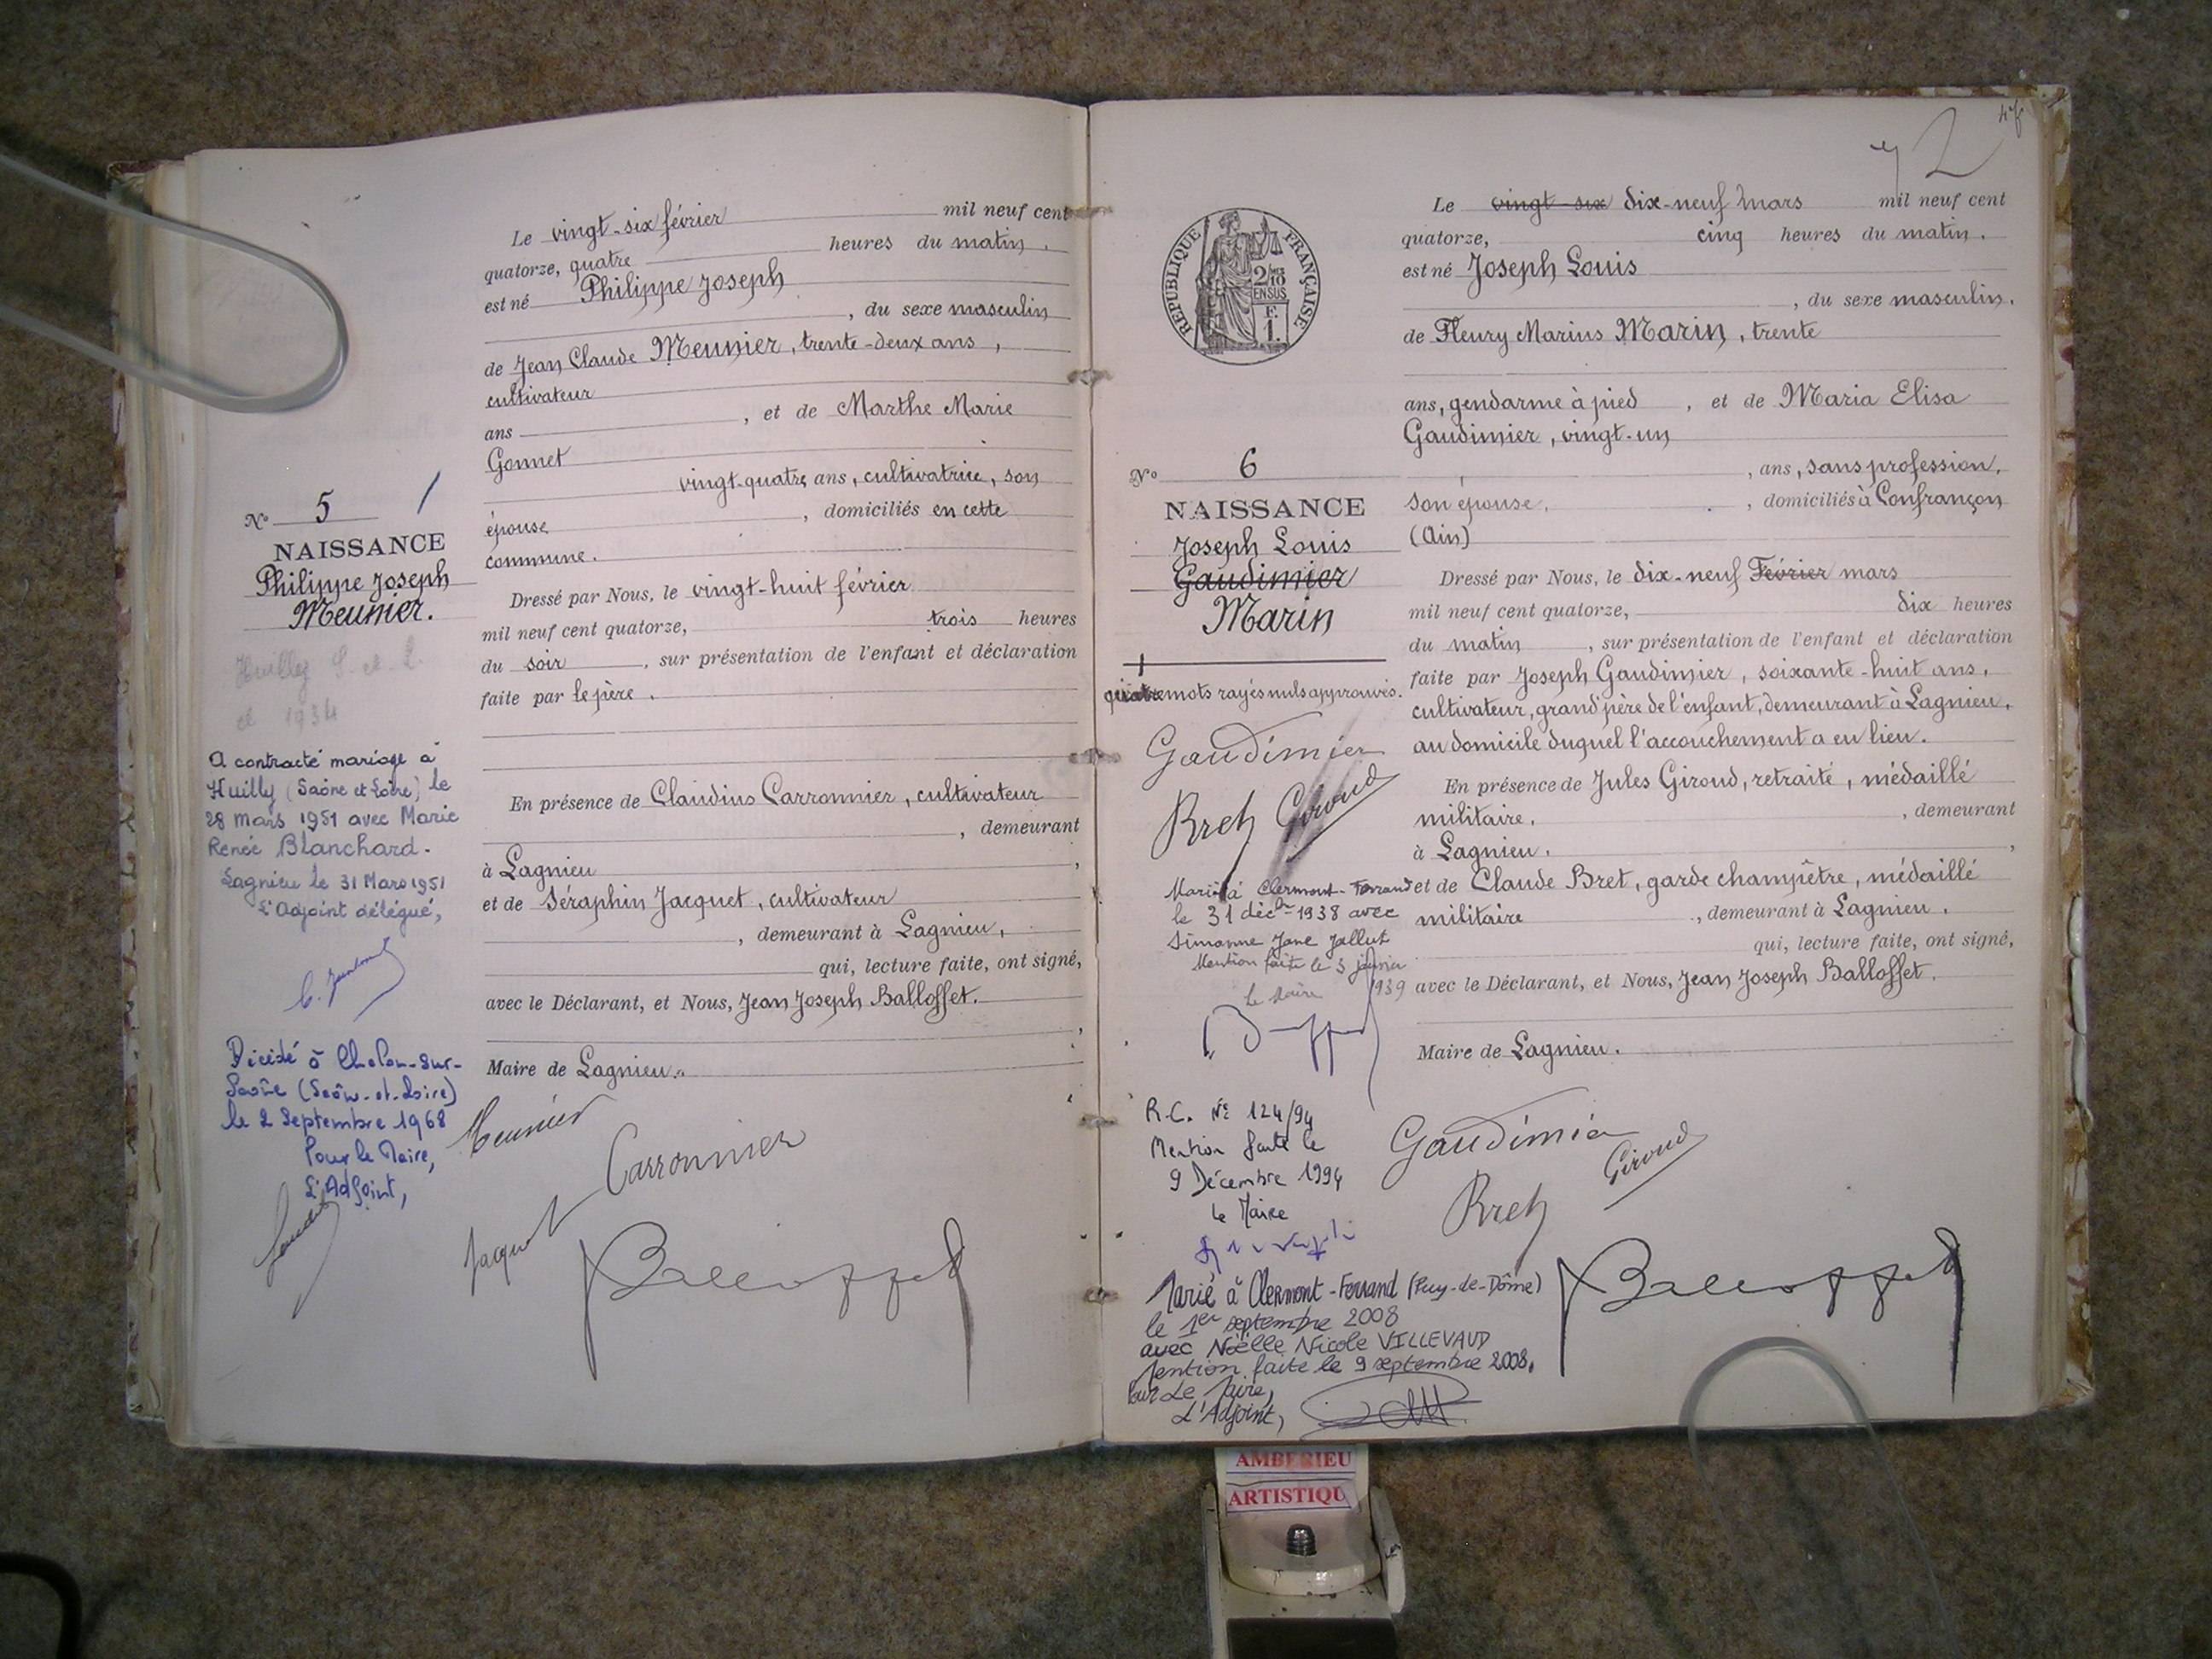 Le vingt-six février mil neuf cent
quatorze, quatre heures du matin.
est né Philippe Joseph
, du sexe masculin
de Jean Claude Meunier, trente-deux ans,
cultivateur
ans , et de Marthe Marie
Gonnet
vingt-quatre ans, cultivatrice, son
épouse , domiciliés en cette
commune.
Dressé par Nous, le vingt-huit février
mil neuf cent quatorze, trois heures
du soir , sur présentation de l'enfant et déclaration
faite par le père.
En présence de Claudius Carronnier, cultivateur
, demeurant
à Lagnieu ,
et de Séraphin Jacquet, cultivateur
, demeurant à Lagnieu,
qui, lecture faite, ont signé,
avec le Déclarant, et Nous, Jean Joseph Balloffet.
,
Maire de Lagnieu.
Meunier
Carronnier
Jacquet
Balloffet
N° 5
NAISSANCE
Philippe Joseph
Meunier.
Huilley S. et L.
1934
A contracté mariage à
Huilly (Saône et Loire) le
28 mars 1951 avec Marie
Renée Blanchard.
Lagnieu le 31 Mars 1951
L'Adjoint délégué,
Décédé à Chalon-sur-
Saône (Saône-et-Loire)
le 2 Septembre 1968
Pour le Maire,
L'Adjoint,
47
2
REPUBLIQUE FRANÇAISE
2/10
EN SUS
F.
1.
Le vingt-six dix-neuf mars mil neuf cent
quatorze, cinq heures du matin.
est né Joseph Louis
, du sexe masculin.
de Fleury Marius Marin, trente
ans, gendarme à pied , et de Maria Elisa
Gaudimier, vingt-un
, ans, sans profession,
son épouse, , domiciliés à Confrançon
(Ain)
Dressé par Nous, le dix-neuf Février mars
mil neuf cent quatorze, dix heures
du matin , sur présentation de l'enfant et déclaration
faite par Joseph Gaudimier, soixante-huit ans,
cultivateur, grand père de l'enfant, demeurant à Lagnieu,
au domicile duquel l'accouchement a eu lieu.
En présence de Jules Giroud, retraité, médaillé
militaire, , demeurant
à Lagnieu. ,
et de Claude Bret, garde champêtre, médaillé
militaire , demeurant à Lagnieu,
qui, lecture faite, ont signé,
avec le Déclarant, et Nous, Jean Joseph Balloffet.
Maire de Lagnieu.
Gaudimier
Giroud
Bret
Balloffet
N° 6
NAISSANCE
Joseph Louis
Gaudimier
Marin
quatre mots rayés nuls approuvés.
Gaudimier
Bret Giroud
Marié à Clermont-Ferrand
le 31 décbre 1938 avec
Simonne Jane Jallut
Mention faite le 3 janvier
1939
Le Maire
R.C. N° 124/94
Mention faite le
9 Décembre 1994
le Maire
Marié à Clermont-Ferrand (Puy-de-Dôme)
le 1er septembre 2008
avec Noëlle Nicole VILLEVAUD
Mention faite le 9 septembre 2008.
Pour Le Maire,
L'Adjoint,
AMBERIEU
ARTISTIQU